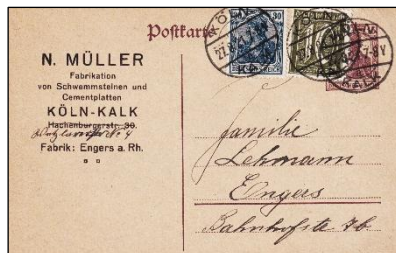 Postkarte
N. MÜLLER
Fabrikation
von Schwemmsteinen und
Cementplatten
KÖLN-KALK
Hachenburgerstr. 30.
Fabrik: Engers a. Rh.
Familie
Lehmann
Engers
Bahnhofstr. 7b.